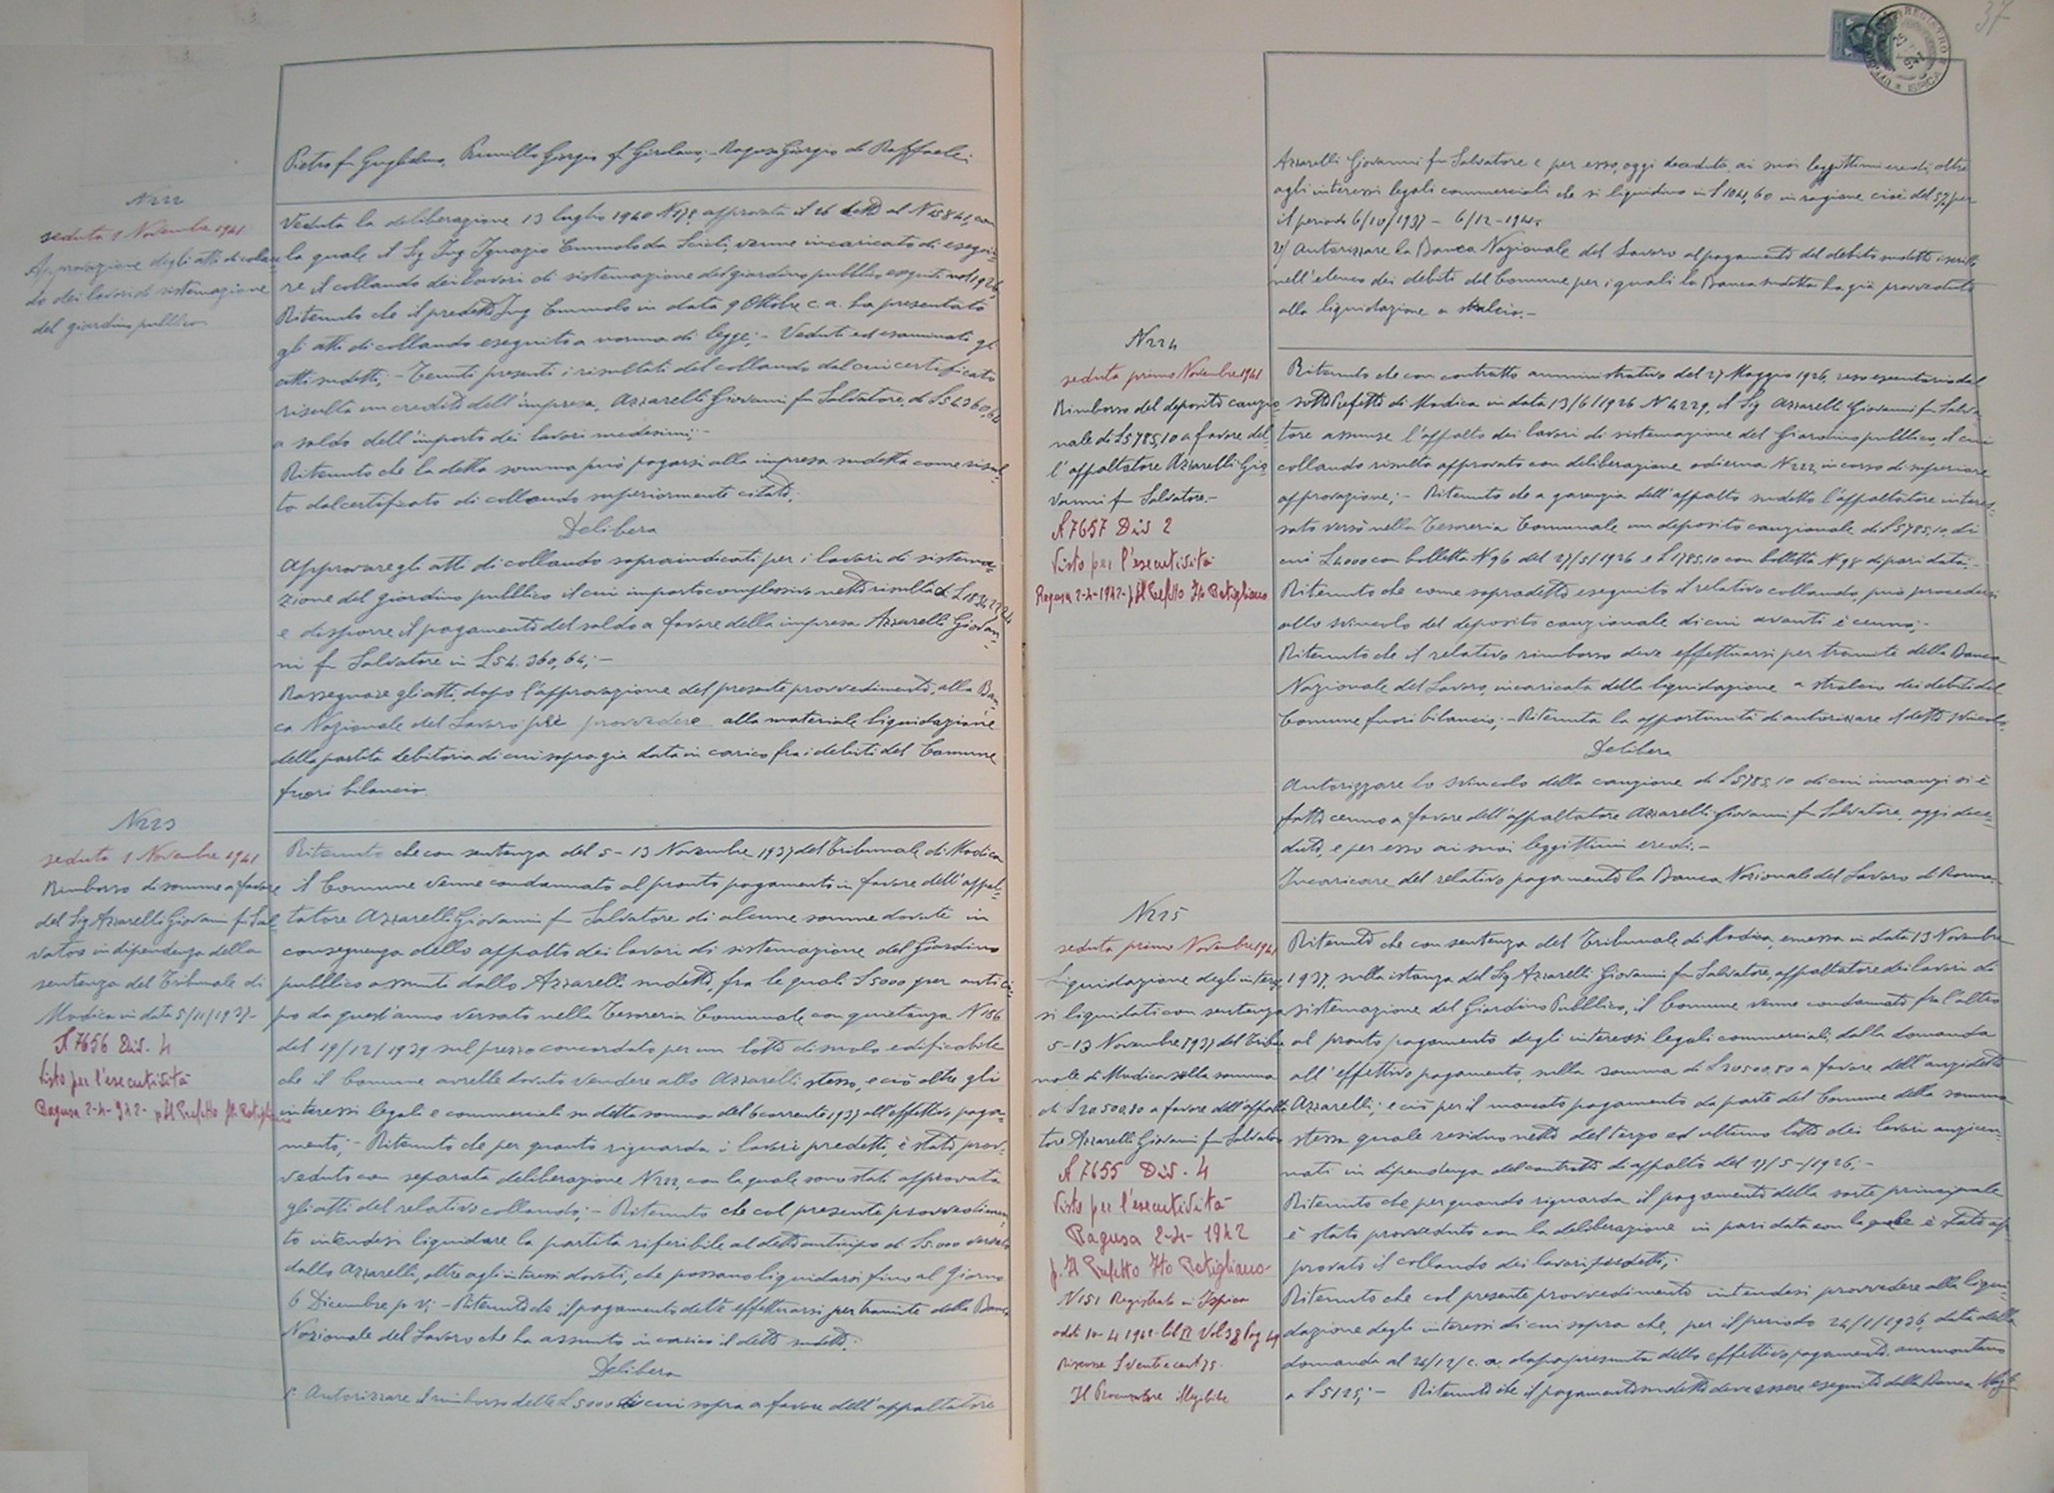 Pietro fu Guglielmo, Giorgio fu Girolamo; Ragusa Giorgio di Raffaele;
N 222
seduta 1 Novembre 1941
Approvazione degli atti di collau
do dei lavori di sistemazione
del giardino pubblico
Veduta la deliberazione 13 luglio 1940 N 178 approvata il 26 detto al N 15841, con
la quale il Sig Ing Ignazio Emmolo da Scicli, venne incaricato di esegui-
re il collaudo dei lavori di sistemazione del giardino pubblico eseguiti nel 1926,
Ritenuto che il predetto Ing Emmolo in data 9 Ottobre c.a. ha presentato
gli atti di collaudo eseguito a norma di legge; - Veduti ed esaminati gli
atti sudetti; - Tenuti presenti i risultati del collaudo dal cui certificato
risulta un credito dell'impresa, Azzarelli Giovanni fu Salvatore, di L 54360,64
a saldo dell'importo dei lavori medesimi; -
Ritenuto che la detta somma può pagarsi alla impresa sudetta come risul-
ta dal certificato di collaudo superiormente citato;
Delibera
Approvare gli atti di collaudo sopraindicati per i lavori di sistema-
zione del giardino pubblico il cui importo complessivo netto risulta di L
e disporre il pagamento del saldo a favore della impresa Azzarelli Giovan-
ni fu Salvatore in L 54.360,64; -
Rassegnare gli atti, dopo l'approvazione del presente provvedimento, alla Ban-
ca Nazionale del Lavoro pel provvedere alla materiale liquidazione
della partita debitoria di cui sopra già data in carico fra i debiti del Comune
fuori bilancio.
N 223
seduta 1 Novembre 1941
Rimborso di somme a favore
del Sig Azzarelli Giovanni fu Sal-
vatore in dipendenza della
sentenza del Tribunale di
Modica in data 5/11/1937-
N 7656 Div. 4
Visto per l'esecutività
Ragusa 2-4-942- p Il Prefetto
Ritenuto che con sentenza del 5-13 Novembre 1937 del tribunale di Modica
il Comune venne condannato al pronto pagamento in favore dell'appal-
tatore Azzarelli Giovanni fu Salvatore di alcune somme dovute in
conseguenza dello appalto dei lavori di sistemazione del Giardino
pubblico assunti dallo Azzarelli sudetto, fra le quali L 5000 per antici-
po da quest'anno versato nella Tesoreria Comunale con quietanza N 186
del 19/12/1939 sul prezzo concordato per un lotto di suolo edificabile
che il Comune avrebbe dovuto vendere allo Azzarelli stesso, e ciò oltre gli
interessi legali e commerciali su detta somma del 6 corrente 1937 all'effettivo paga-
mento; - Ritenuto che per quanto riguarda i lavori predetti, è stato prov-
veduto con separata deliberazione N 222, con la quale sono stati approvati
gli atti del relativo collaudo; - Ritenuto che col presente provvedimen-
to intendesi liquidare la partita riferibile al detto anticipo di L 5.000 versato
dallo Azzarelli, oltre agli interessi dovuti, che possano liquidarsi fino al Giorno
6 Dicembre p. v; - Ritenuto che il pagamento debba effettuarsi per tramite della Banca
Nazionale del Lavoro che ha assunto in carico il detto sudetto;
Delibera
1° Autorizzare il rimborso delle L 5000 di cui sopra a favore dell'appaltatore
37
Azzarelli Giovanni fu Salvatore e per esso, oggi deceduto, ai suoi leggittimi eredi, oltre
agli interessi legali commerciali che si liquidino in L 1041,60 in ragione cioè del 5% per
il periodo 6/10/1937 - 6/12-1941;
2/ Autorizzare la Banca Nazionale del Lavoro al pagamento del debito sudetto iscritto
nell'elenco dei debiti del Comune per i quali la Banca sudetta ha già provveduto
alla liquidazione a stralcio. -
N 224
seduta primo Novembre 1941
Rimborso del deposito cauzio-
nale di L 5785,10 a favore del-
l'appaltatore Azzarelli Gio-
vanni fu Salvatore. -
N 7657 Div 2
Visto per l'esecutività
Ragusa 2-4-1942- p Il Prefetto
Ritenuto che con contratto amministrativo del 27 Maggio 1926, reso esecutorio dal
sotto Prefetto di Modica in data 13/6/1926 N 4229, il Sig Azzarelli Giovanni fu Salva-
tore assunse l'appalto dei lavori di sistemazione del Giardino pubblico, il cui
collaudo risulta approvato con deliberazione odierna N 222 in corso di superiore
approvazione; - Ritenuto che a garenzia dell'appalto sudetto l'appaltatore interes-
sato versò nella Tesoreria Comunale un deposito cauzionale di L 5785,10, di
cui L 4000 con bolletta N 96 del 27/5/1926 e L 1785,10 con bolletta N 98 di pari data; -
Ritenuto che come sopradetto eseguito il relativo collaudo, può procedersi
allo svincolo del deposito cauzionale di cui avanti è cenno; -
Ritenuto che il relativo rimborso deve effettuarsi per tramite della Banca
Nazionale del Lavoro, incaricata della liquidazione a stralcio dei debiti del
Comune fuori bilancio; - Ritenuta la opportunità di autorizzare il detto svincolo.
Delibera
Autorizzare lo svincolo della cauzione di L 5785,10 di cui innanzi si è
fatto cenno a favore dell'appaltatore Azzarelli Giovanni fu Salvatore, oggi dece-
duto, e per esso ai suoi leggittimi eredi. -
Incaricare del relativo pagamento la Banca Nazionale del Lavoro di Roma.
N 225
seduta primo Novembre 1941
Liquidazione degli interes-
si liquidati con sentenza
5-13 Novembre 1937 del tribu-
nale di Modica sulla somma
di L 20500,80 a favore dell'appalta
tore Azzarelli Giovanni fu Salvatore
N 7655 Div. 4
Visto per l'esecutività
Ragusa 2-4-1942
p. Il Prefetto
N 151 Registrato in Ispica
addì 10-4 1942- Vol 38
Riscosse L venti e cent 75.
Il Procuratore Illegibile
Ritenuto che con sentenza del Tribunale di Modica, emessa in data 13 Novembre
1937, sulla istanza del Sig Azzarelli Giovanni fu Salvatore, appaltatore dei lavori di
sistemazione del Giardino Pubblico, il Comune venne condannato fra l'altro
al pronto pagamento degli interessi legali commerciali, dalla domanda
all'effettivo pagamento, sulla somma di L 20500,80 a favore dell'anzidetto
Azzarelli; e ciò per il mancato pagamento da parte del Comune della somma
stessa quale residuo netto del terzo ed ultimo lotto dei lavori anzicen-
nati in dipendenza del contratto di appalto del 27/5-/1926; -
Ritenuto che per quando riguarda il pagamento della sorte principale
è stato provveduto con la deliberazione in pari data con la quale è stato ap-
provato il collaudo dei lavori predetti;
Ritenuto che col presente provvedimento intendesi provvedere alla liqui-
dazione degli interessi di cui sopra che, per il periodo 24/1/1936, data della
domanda al 24/12/c.a. dapo presunta dello effettivo pagamento ammontano
a L 5125; - Ritenuto che il pagamento sudetto deve essere eseguito dalla Banca